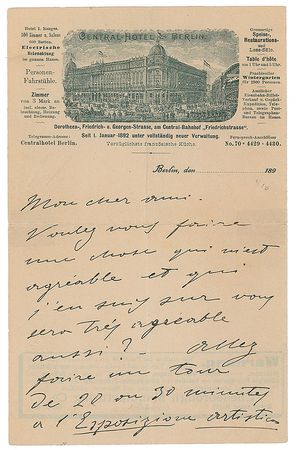 Hotel I. Ranges.
500 Zimmer u. Salons
600 Betten.
Electrische
Beleuchtung
im ganzen Hause.
Personen-
Fahrstühle.
Zimmer
von 3 Mark an
incl. electr. Beleuchtung, Heizung und Bedienung.
Telegramm-Adresse:
Centralhotel Berlin.
CENTRAL-HOTEL BERLIN.
Grossartige
Speise-,
Restaurations-
und
Lese-Säle.
Table d'hôte
um 1 Uhr und 5 Uhr.
Prachtvoller
Wintergarten
für 2500 Personen.
Amtlicher
Eisenbahn-Billet-
Verkauf u. Gepäck-
Expedition, Telephon, sowie Post
und Telegraphen-
Bureau im Hause.
Fernsprech-Anschlüsse
No. 70 • 4429 • 4430.
Dorotheen-, Friedrich- u. Georgen-Strasse, am Central-Bahnhof „Friedrichstrasse".
Seit 1. Januar 1892 unter vollständig neuer Verwaltung.
Vorzüglichste französische Küche.
Berlin, den 189
Mon cher ami.
Voulez vous faire
une chose qui m'est
agréable et qui
j'en suis sur vous
sera très agréable
aussi? – Allez
faire un tour
de 20 ou 30 minutes
a l'Esposizione artistica